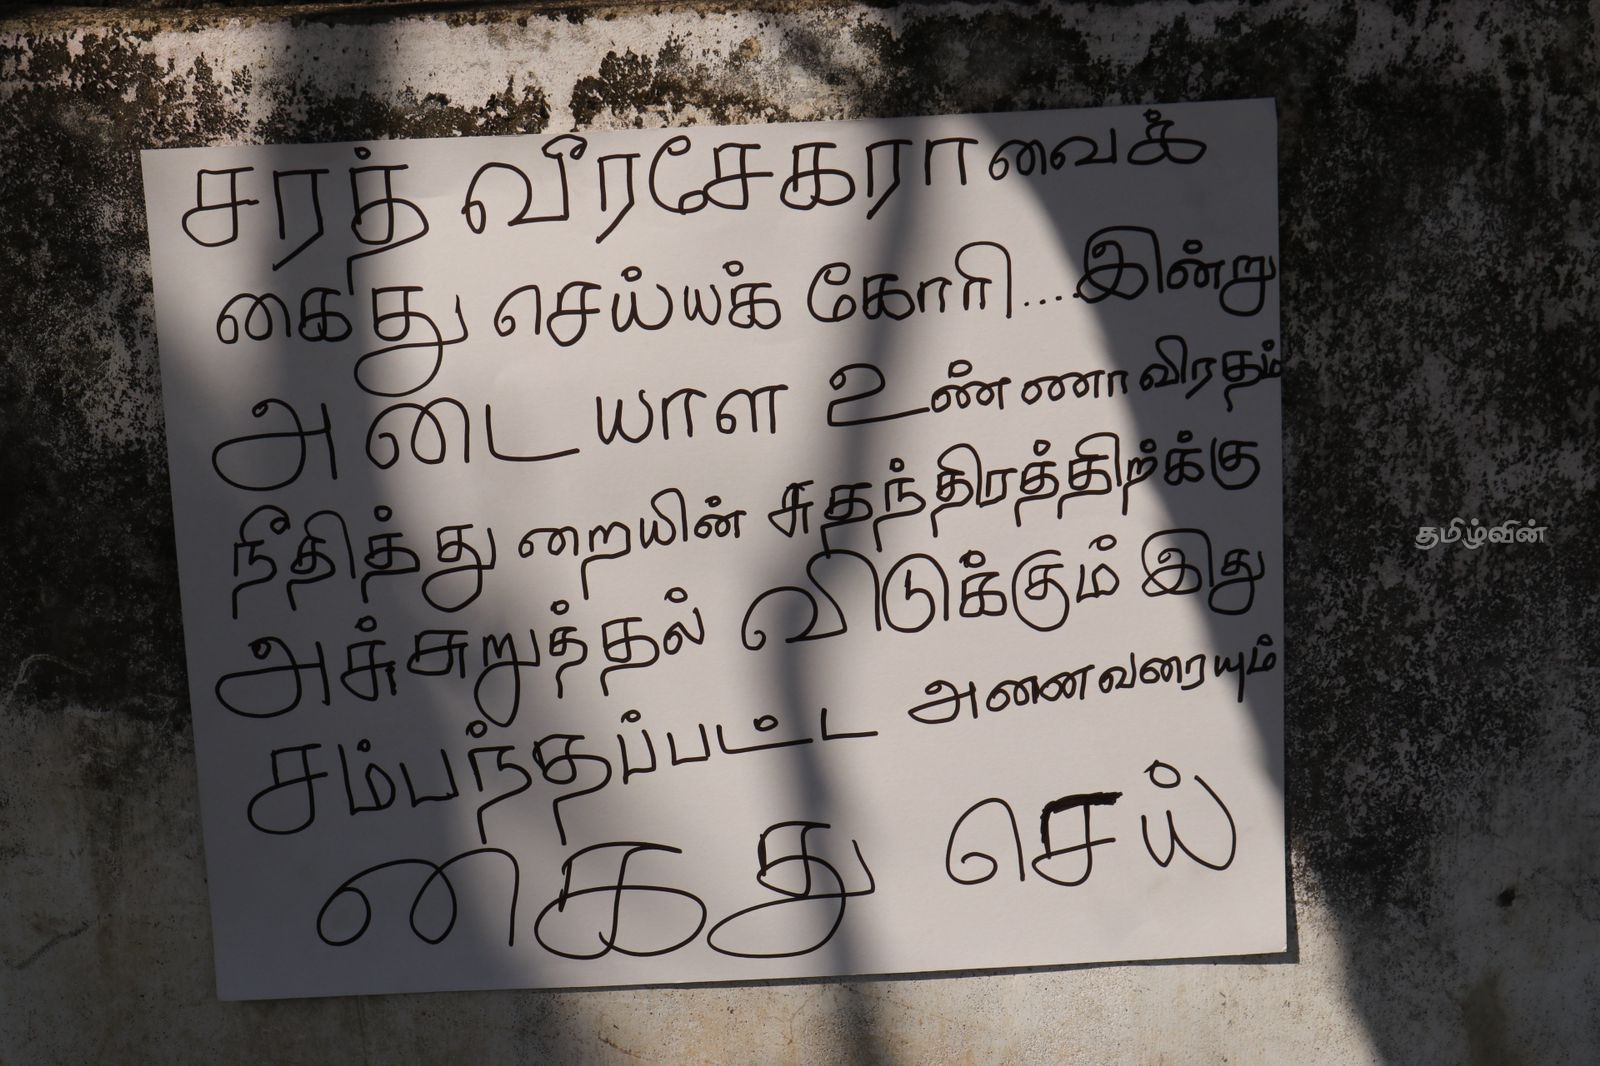 சரத் வீரசேகராவைக்
கைது செய்யக் கோரி....இன்று
அடையாள உண்ணாவிரதம்
நீதித்துறையின் சுதந்திரத்திற்க்கு
அச்சுறுத்தல் விடுக்கும் இது
சம்பந்தப்பட்ட அனைவரையும்
கைது செய்
தமிழ்வின்